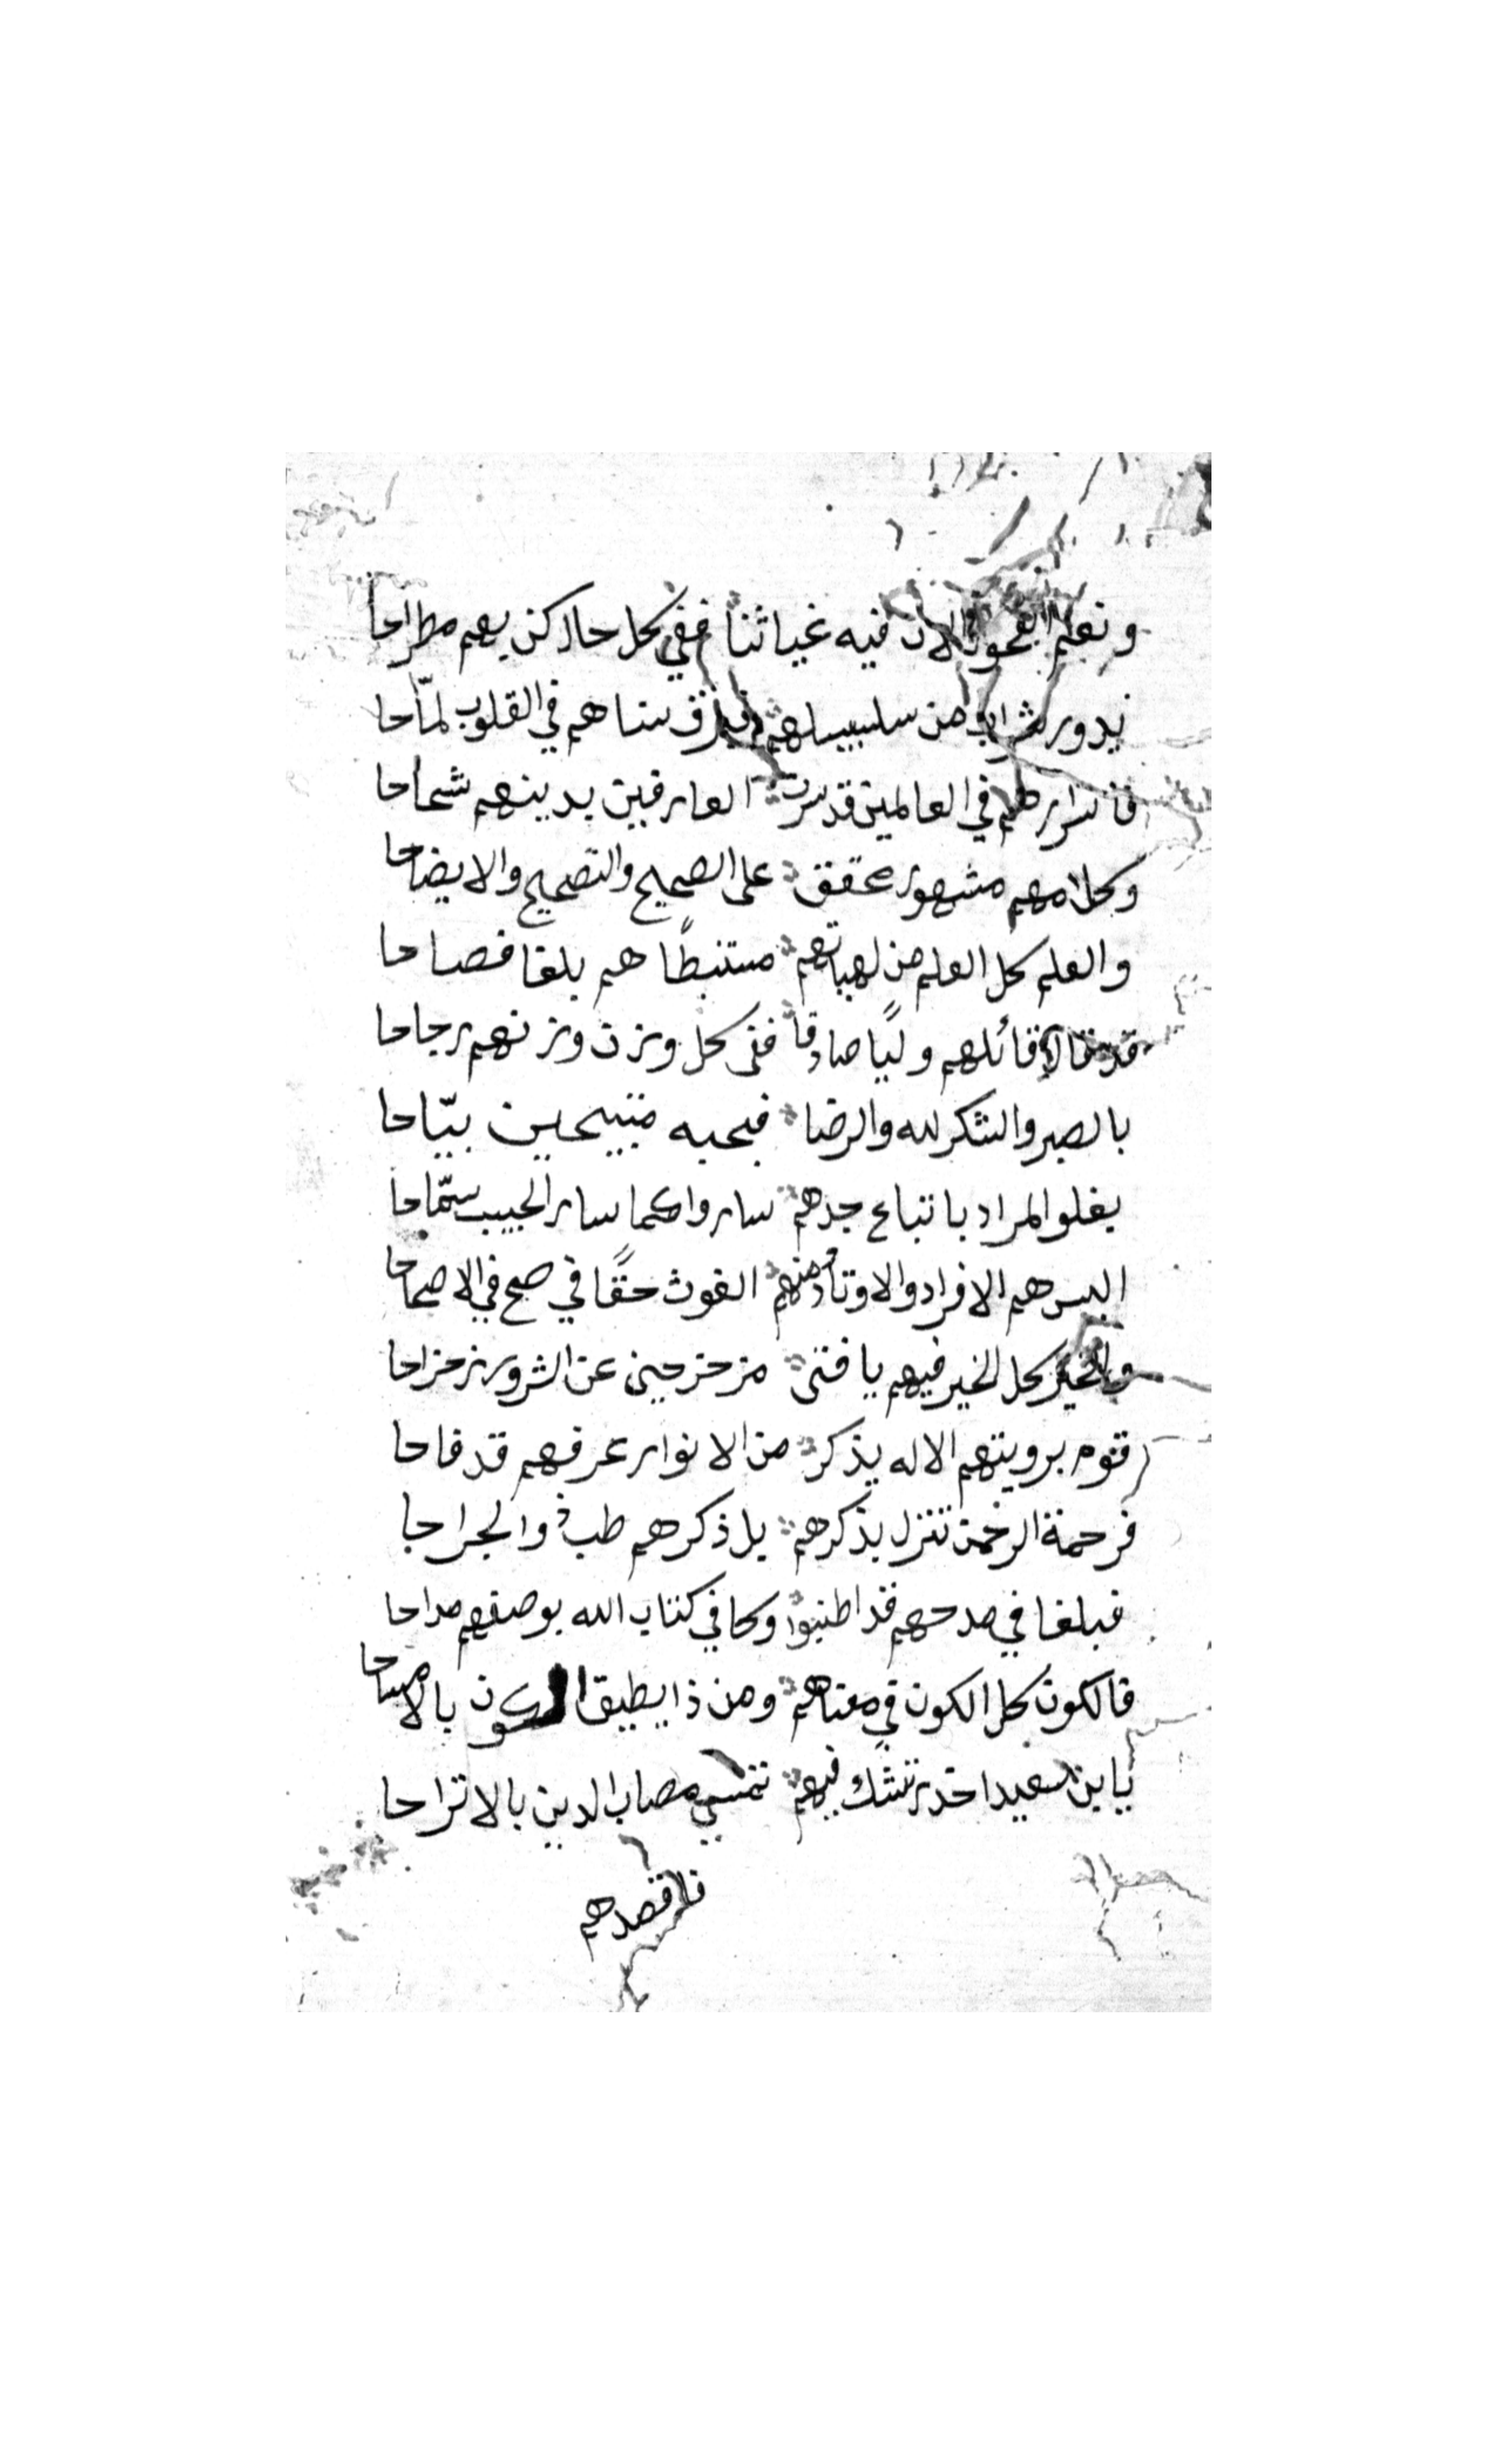 ونعم الان فيه غياثنا ففي كل حال كن بهم مطراحا
ندور شراب من سلسبيلهم سناهم في القلوب لماحا
في العالمين قد سرت العارفين بدينهم شحاحا
وكلامهم مشهور محقق على الصحيح والتصحيح والايضاحا
والعلم كل العلم من لهباتهم مستنبطًا هم بلغا فصاحا
قد قال قائلهم وليًا صادقا فتى كل وزن وزنهم رجاحا
بالصبر والشكر لله والرضا فبحبه متبيحين بيّاحا
يغلو المراد باتباع جدهم ساروا كما سار الحبيب سمّاحا
اليس هم الافراد والاوتاد منهم الغوث حقًا في صح في الاصحاحا
والخير كل الخير فيهم يا فتى مزحزحين عن الشرور زحزاحا
قوم برويتهم الاله يذكر من الانوار عرفهم قد فاحا
فرحمة الرحمن تنزل بذكرهم بل ذكرهم طب والجراحا
فبلغا في مدحهم قد اطنبوا وكا في كتاب الله بوصفهم مداحا
فالكون كل الكون في معناهم ومن ذا يطيق الكون بالامساحا
يا بن سعيد احذر تشك فيهم تمسي مصاب الدين بالاتراحا
فاقصدهم